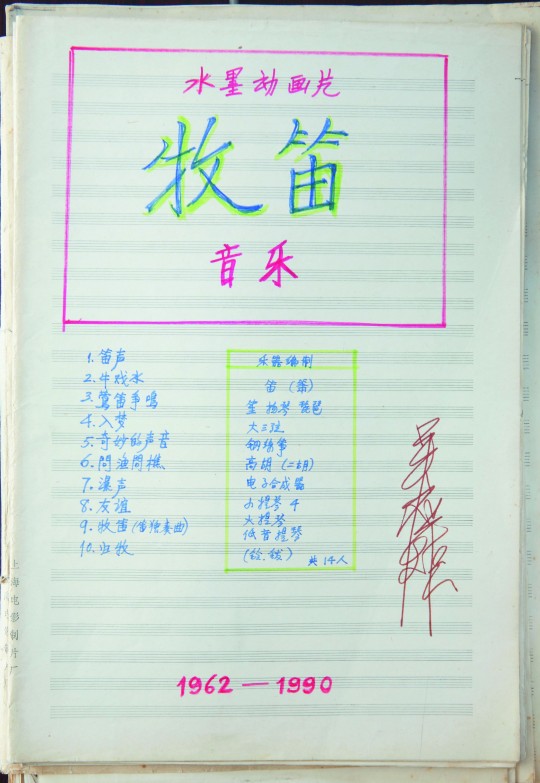 水墨动画片
牧笛
音乐
1. 笛声
2. 牛戏水
3. 莺笛争鸣
4. 入梦
5. 奇妙的声音
6. 问渔问樵
7. 瀑声
8. 友谊
9. 牧笛(笛独奏曲)
10. 归牧
乐器编制
笛 (箫)
笙 扬琴 琵琶
大三弦
钢丝筝
高胡 (二胡)
电子合成器
小提琴 4
大提琴
低音提琴
(铃.钹) 共14人
1962—1990
上海电影制片厂